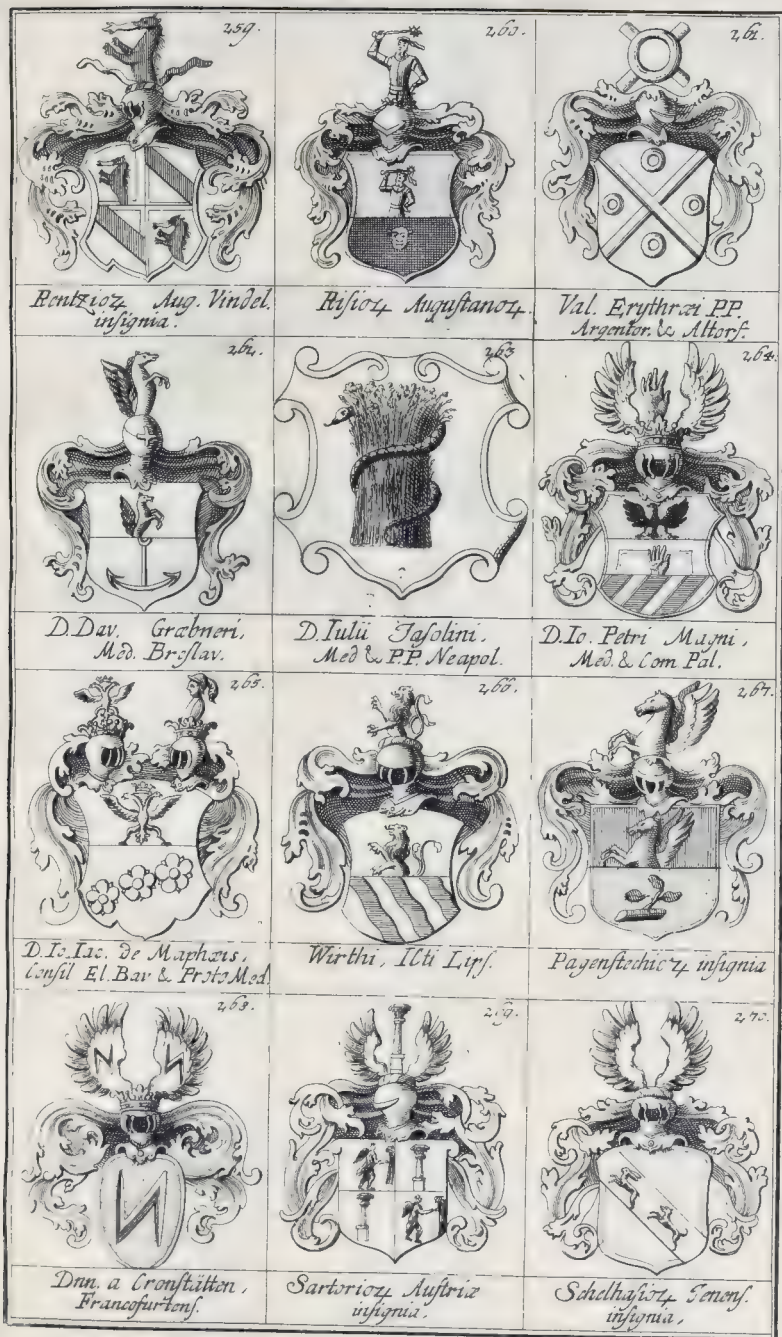 259.
Rentzioꝝ Aug. Vindel.
insignia.
260.
Risioꝝ Augustanoꝝ.
261.
Val. Erythræi P.P.
Argentor. & Altorf.
262.
D. Dav. Græbneri,
Med. Breslav.
263
D. Iulii Jasolini,
Med & P.P. Neapol.
264.
D. Io. Petri Magni,
Med. & Com Pal.
265.
D. Io. Iac. de Maphæis,
Consil El. Bav & Proto Med.
266.
Wirthi, ICti Lips.
267.
Pagenstechioꝝ insignia
268.
Dnn. a Cronstätten,
Francofurtens.
269.
Sartorioꝝ Austriæ
insignia.
270.
Schelhasioꝝ Jenens.
insignia.